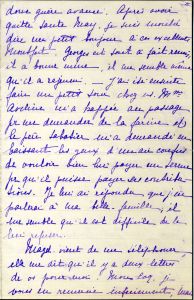 donc guère avance. Après avoir
quitté sainte Mary, je suis monté
dire un petit bonjour à cet excellent
Montfort. Georges est tout à fait remis
il a bonne mine, il me semble même
qu'il a rajeuni. — J'ai été ensuite
faire un petit tour chez
m'a happée au passage
pr me demander de la farine et
le père Sabatier m'a demandé en
baissant les yeux d'un air confus
de vouloir bien lui payer un terme
pr qu'il puisse payer ses contribu-
sions. Je lui ai répondu que j'en
parlerai à ma belle famille, il
me semble qu'il est difficile de le
lui refuser.
Magd. vient de me téléphoner
elle me dit qu'il y a deux lettres
de vs pour moi! Mon coq, je
vous en remercie infiniment, mes